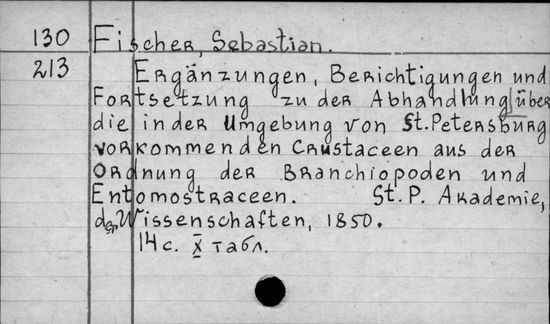 130 Fischer, Sebastian.
213 Ergänzungen, Berichtigungen und
Fortsetzung zu der Abhandlung über
die in der Umgebung von St. Petersburg
vorkommenden Crustaceen aus der
Ordnung der Branchiopoden und
Entomostraceen. St. P. Akademie,
d. Wissenschaften, 1850.
14 с. X табл.